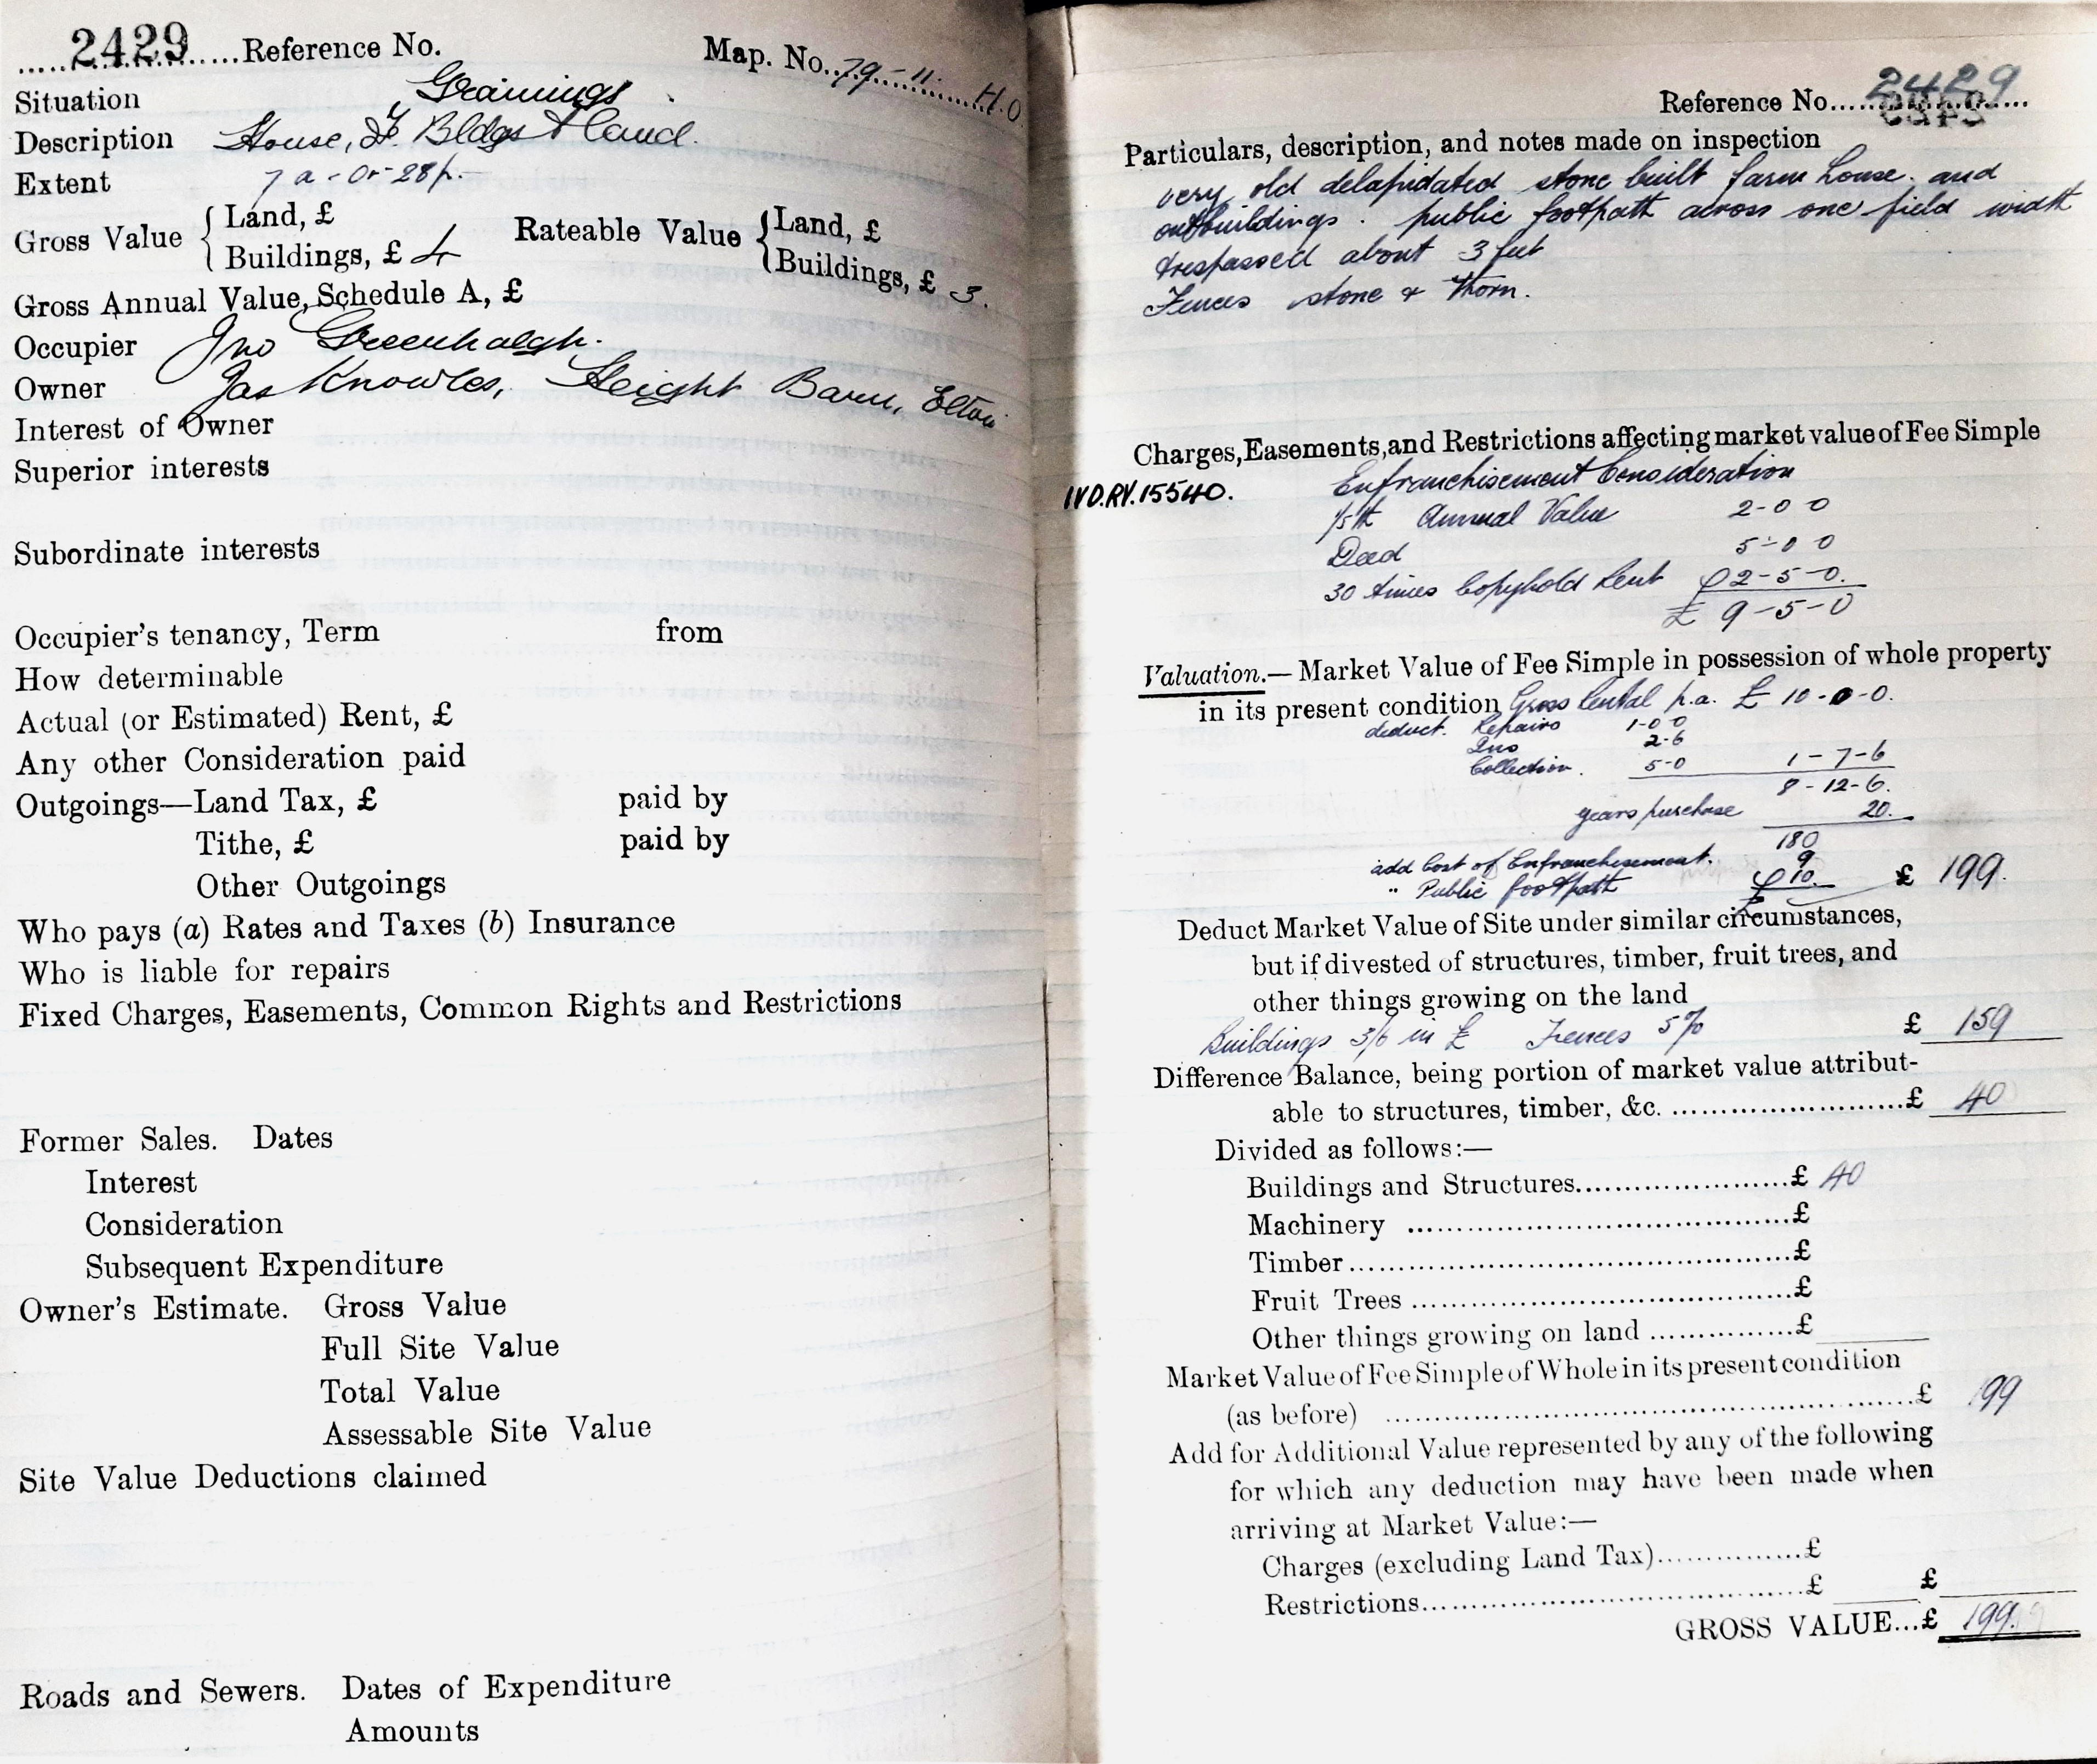 2429 Reference No. Map. No. 79-11. H.O.
Situation Grainings
Description House, F. Bldgs & land.
Extent 7a - 0r - 28p.
Gross Value { Land, £ Rateable Value { Land, £
Buildings, £ 4 Buildings, £ 3.
Gross Annual Value, Schedule A, £
Occupier Jno Greenhalgh.
Owner Jas Knowles, Height Barn, Elton
Interest of Owner
Superior interests
Subordinate interests
Occupier's tenancy, Term from
How determinable
Actual (or Estimated) Rent, £
Any other Consideration paid
Outgoings—Land Tax, £ paid by
Tithe, £ paid by
Other Outgoings
Who pays (a) Rates and Taxes (b) Insurance
Who is liable for repairs
Fixed Charges, Easements, Common Rights and Restrictions
Former Sales. Dates
Interest
Consideration
Subsequent Expenditure
Owner's Estimate. Gross Value
Full Site Value
Total Value
Assessable Site Value
Site Value Deductions claimed
Roads and Sewers. Dates of Expenditure
Amounts
Reference No. 2429
Particulars, description, and notes made on inspection
very old delapidated stone built farm house. and
outbuildings. public footpath across one field width
trespassed about 3 feet
Fences stone & thorn.
Charges, Easements, and Restrictions affecting market value of Fee Simple
Enfranchisement Consideration
IVD.RV.15540.
1/5th Annual Value 2-0-0
Deed 5-0-0
30 times Copyhold Rent 2-5-0.
£ 9-5-0
Valuation.— Market Value of Fee Simple in possession of whole property
in its present condition Gross Rental p.a. £ 10-0-0.
deduct. Repairs 1-0-0
Ins 2-6
Collection. 5-0 1-7-6
8-12-6.
years purchase 20.
180
add Cost of Enfranchisement. 9
" Public footpath 10. £ 199.
Deduct Market Value of Site under similar circumstances,
but if divested of structures, timber, fruit trees, and
other things growing on the land
Buildings 3/6 in £ Fences 5% £ 159
Difference Balance, being portion of market value attribut-
able to structures, timber, &c. £ 40
Divided as follows:—
Buildings and Structures £ 40
Machinery £
Timber £
Fruit Trees £
Other things growing on land £
Market Value of Fee Simple of Whole in its present condition
(as before) £ 199
Add for Additional Value represented by any of the following
for which any deduction may have been made when
arriving at Market Value:—
Charges (excluding Land Tax) £
Restrictions £ £
GROSS VALUE...£ 199.